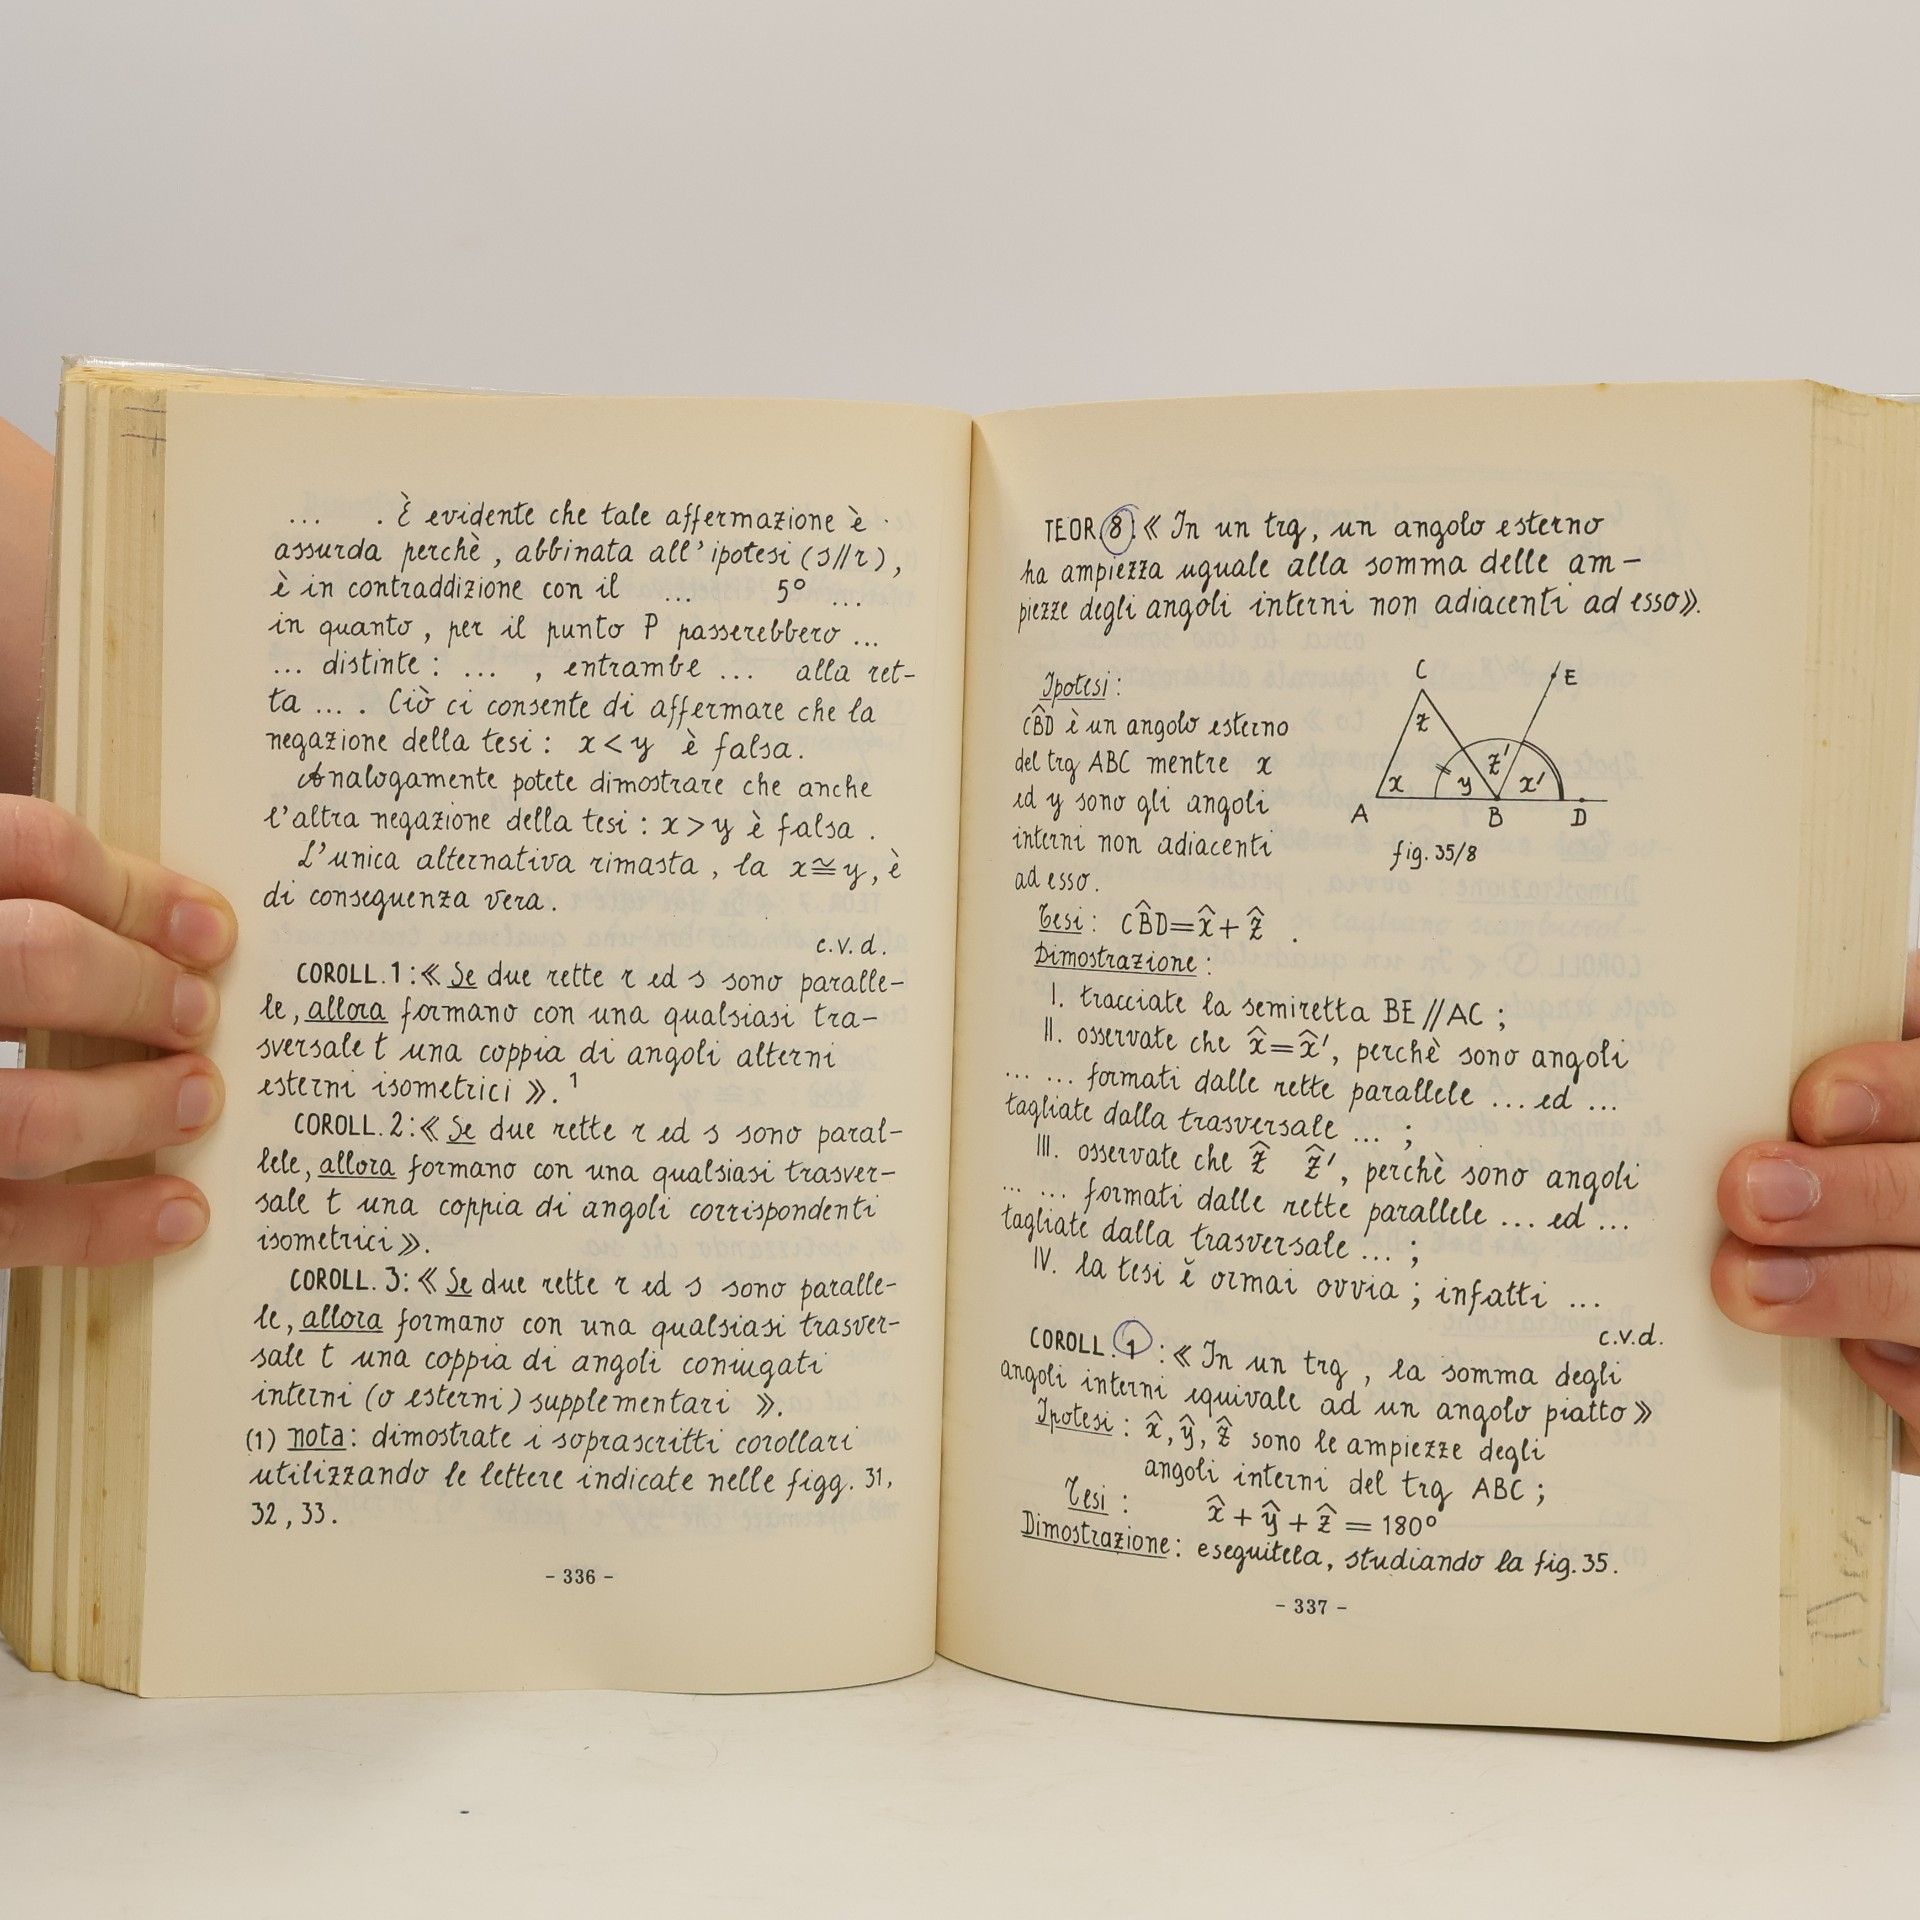 ... . È evidente che tale affermazione è
assurda perchè, abbinata all'ipotesi (s//r),
è in contraddizione con il ... 5° ...
in quanto, per il punto P passerebbero ...
... distinte: ... , entrambe ... alla ret-
ta ... . Ciò ci consente di affermare che la
negazione della tesi: x < y è falsa.
Analogamente potete dimostrare che anche
l'altra negazione della tesi: x > y è falsa.
L'unica alternativa rimasta, la x ≅ y, è
di conseguenza vera.
c.v.d.
COROLL. 1: « Se due rette r ed s sono paralle-
le, allora formano con una qualsiasi tra-
sversale t una coppia di angoli alterni
esterni isometrici ». 1
COROLL. 2: « Se due rette r ed s sono paral-
lele, allora formano con una qualsiasi trasver-
sale t una coppia di angoli corrispondenti
isometrici ».
COROLL. 3: « Se due rette r ed s sono paralle-
le, allora formano con una qualsiasi trasver-
sale t una coppia di angoli coniugati
interni (o esterni) supplementari ».
(1) nota: dimostrate i soprascritti corollari
utilizzando le lettere indicate nelle figg. 31,
32, 33.
- 336 -
TEOR. 8: « In un trg, un angolo esterno
ha ampiezza uguale alla somma delle am-
piezze degli angoli interni non adiacenti ad esso».
Ipotesi:
CB̂D è un angolo esterno
del trg ABC mentre x
ed y sono gli angoli
interni non adiacenti
ad esso.
C
E
z
z'
x
y
x'
A
B
D
fig. 35/8
Tesi: CB̂D = x̂ + ẑ .
Dimostrazione:
I. tracciate la semiretta BE // AC;
II. osservate che x̂ = x̂', perchè sono angoli
... ... formati dalle rette parallele ... ed ...
tagliate dalla trasversale ... ;
III. osservate che ẑ ẑ', perchè sono angoli
... ... formati dalle rette parallele ... ed ...
tagliate dalla trasversale ... ;
IV. la tesi è ormai ovvia; infatti ...
c.v.d.
COROLL. 1: « In un trg, la somma degli
angoli interni equivale ad un angolo piatto»
Ipotesi: x̂, ŷ, ẑ sono le ampiezze degli
angoli interni del trg ABC;
Tesi: x̂ + ŷ + ẑ = 180°
Dimostrazione: eseguitela, studiando la fig. 35.
- 337 -